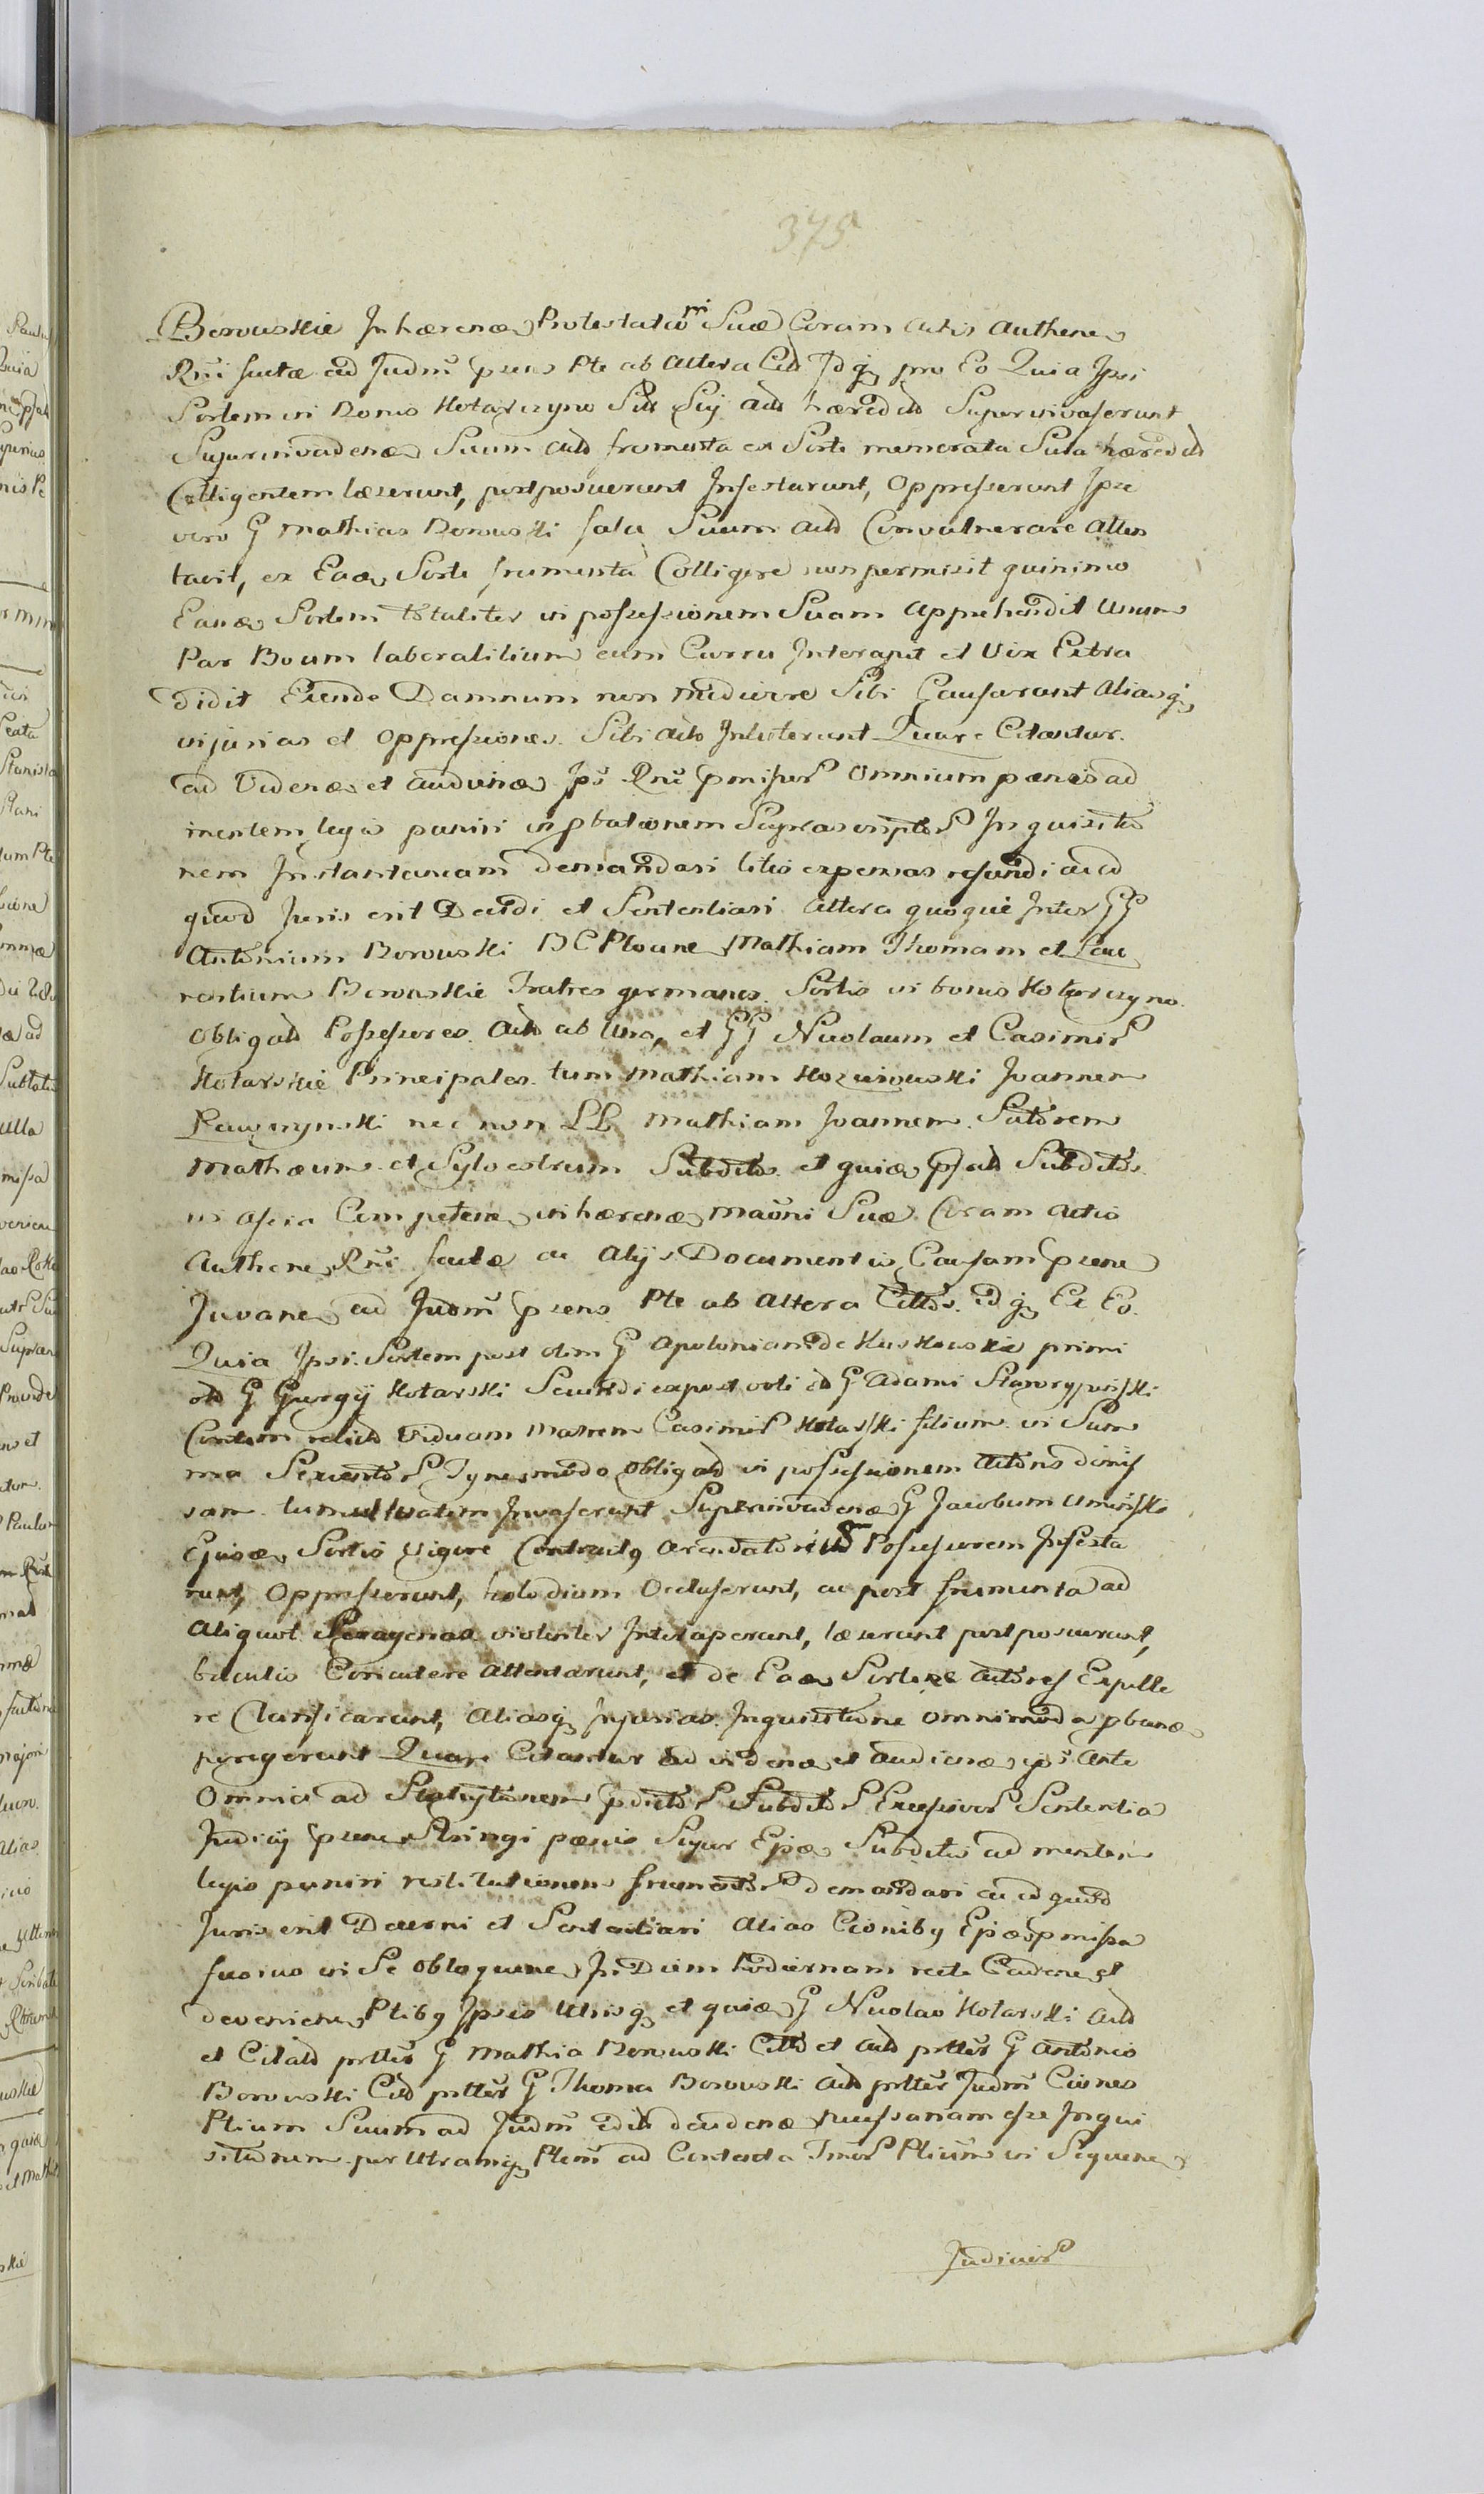 375
Borowskie Inhærendo Protestationi Suæ Coram Actis Authene
Rni factæ ad Judm præns Pte ab Altera Citt Idq pro Eo Quia Ipsi
Sortem in Bonis Kotarczyno Sitt Sij Actt hæredit Superinvaserunt
Superinvadendo Suum Actt frumenta ex Sorte memorata Sua hæredit
Colligentem læserunt, postposuerunt Infestarunt, Oppresserunt Ipse
vero G Mathias Borowski falci Suum Actt Convulnerare Atten
tavit, ex Eade Sorte frumenta Colligere non permisit quinimo
Eande Sortem totaliter in possessionem Suam Apprehendit Unum
Par Boum laboralitium cum Curru Interapit et Vix Extra
didit Exinde Damnum non mediocre Sibi Causarunt Aliasq
injurias et Oppressiones Sibi Actto Intulerunt Quare Citantur
ad Videndo et audiendo Ips Rne pmissor Omnium pænis ad
mentem legis puniri in pbationem Suprascriptor Inquisitio
nem Instantaneam demandari litis expensas refundi ac id
quod Juris erit Decidi et Sententiari Altera quoque Inter GG
Antonium Borowski BC Plocne Mathiam Thomam et Lau
rentium Borowskie Fratres germanos Sortis in bonis Kotarczyno
Obligatt Possessores Actt ab Una, et GG Nicolaum et Casimir
Kotarskie Principales tum Mathiam Joannem
nec non LL Mathiam Joannem Sutorem
Mathæum et Sylvestrum Subditos et quide psatt Subditos
in Assia Competene inhærendo Maoni Suæ Coram Actis
Authene Rni factæ ac Alijs Documentis Causam præne
Juvane ad Judm præns Pte ab Altera Cittos idq Ex Eo
Quia Ipsi Sortem post olim G Apoloniam de primi
olt G Georgij Kotarski Secundi expost voti et G Adami
Contem relict Viduam Matrem Casimir Kotarski filium in Sum
ma Sexcentor Tynes modo Obligatt in possessionem Actoris dimis
sam tumultuatim Invaserunt Superinvadendo G Jacobum
Ejusde Sortis Vigore Contractq Arendatorii Possessorem Infesta
runt, Oppresserunt, Occluserunt, ac post frumenta ad
Aliquot Sexagenas violenter Interaperunt, læserunt postposuerunt,
baculis Concutere Attentarunt, et de Eade Sorte Actores Expelle
re Clarificarunt, Aliasq Injurias Inquisitione omnimoda pbando
peregerunt Quare Citantur ad videndo et audiendo ips Ante
Omnia ad Statuitionem pdictor Subditor Excessivor Sententia
Judicij præne Stringi pænis Super Ejsde Subditis ad mentem
legis puniri restitutionem frumentor demandari ac id quod
Juris erit Decerni et Sententiari Alias Cionibq Ejsde pmissa
fusius in Se Obloquene In Diem hodiernam recte Cadene et
deveniene Ptibq Ipsis Utrisq et quide G Nicolao Kotarski Actt
et Citatt prtter G Mathia Borowski Citto et Actt prtter G Antonio
Borowski Citt prtter G Thoma Borowski Actt prtter Judm Ciones
Ptium Suum ad Judm edit decidendo necessariam esse Inqui
sitionem per Utramq Ptem ad Contenta Tmor Ptium in Sequene
Judicior